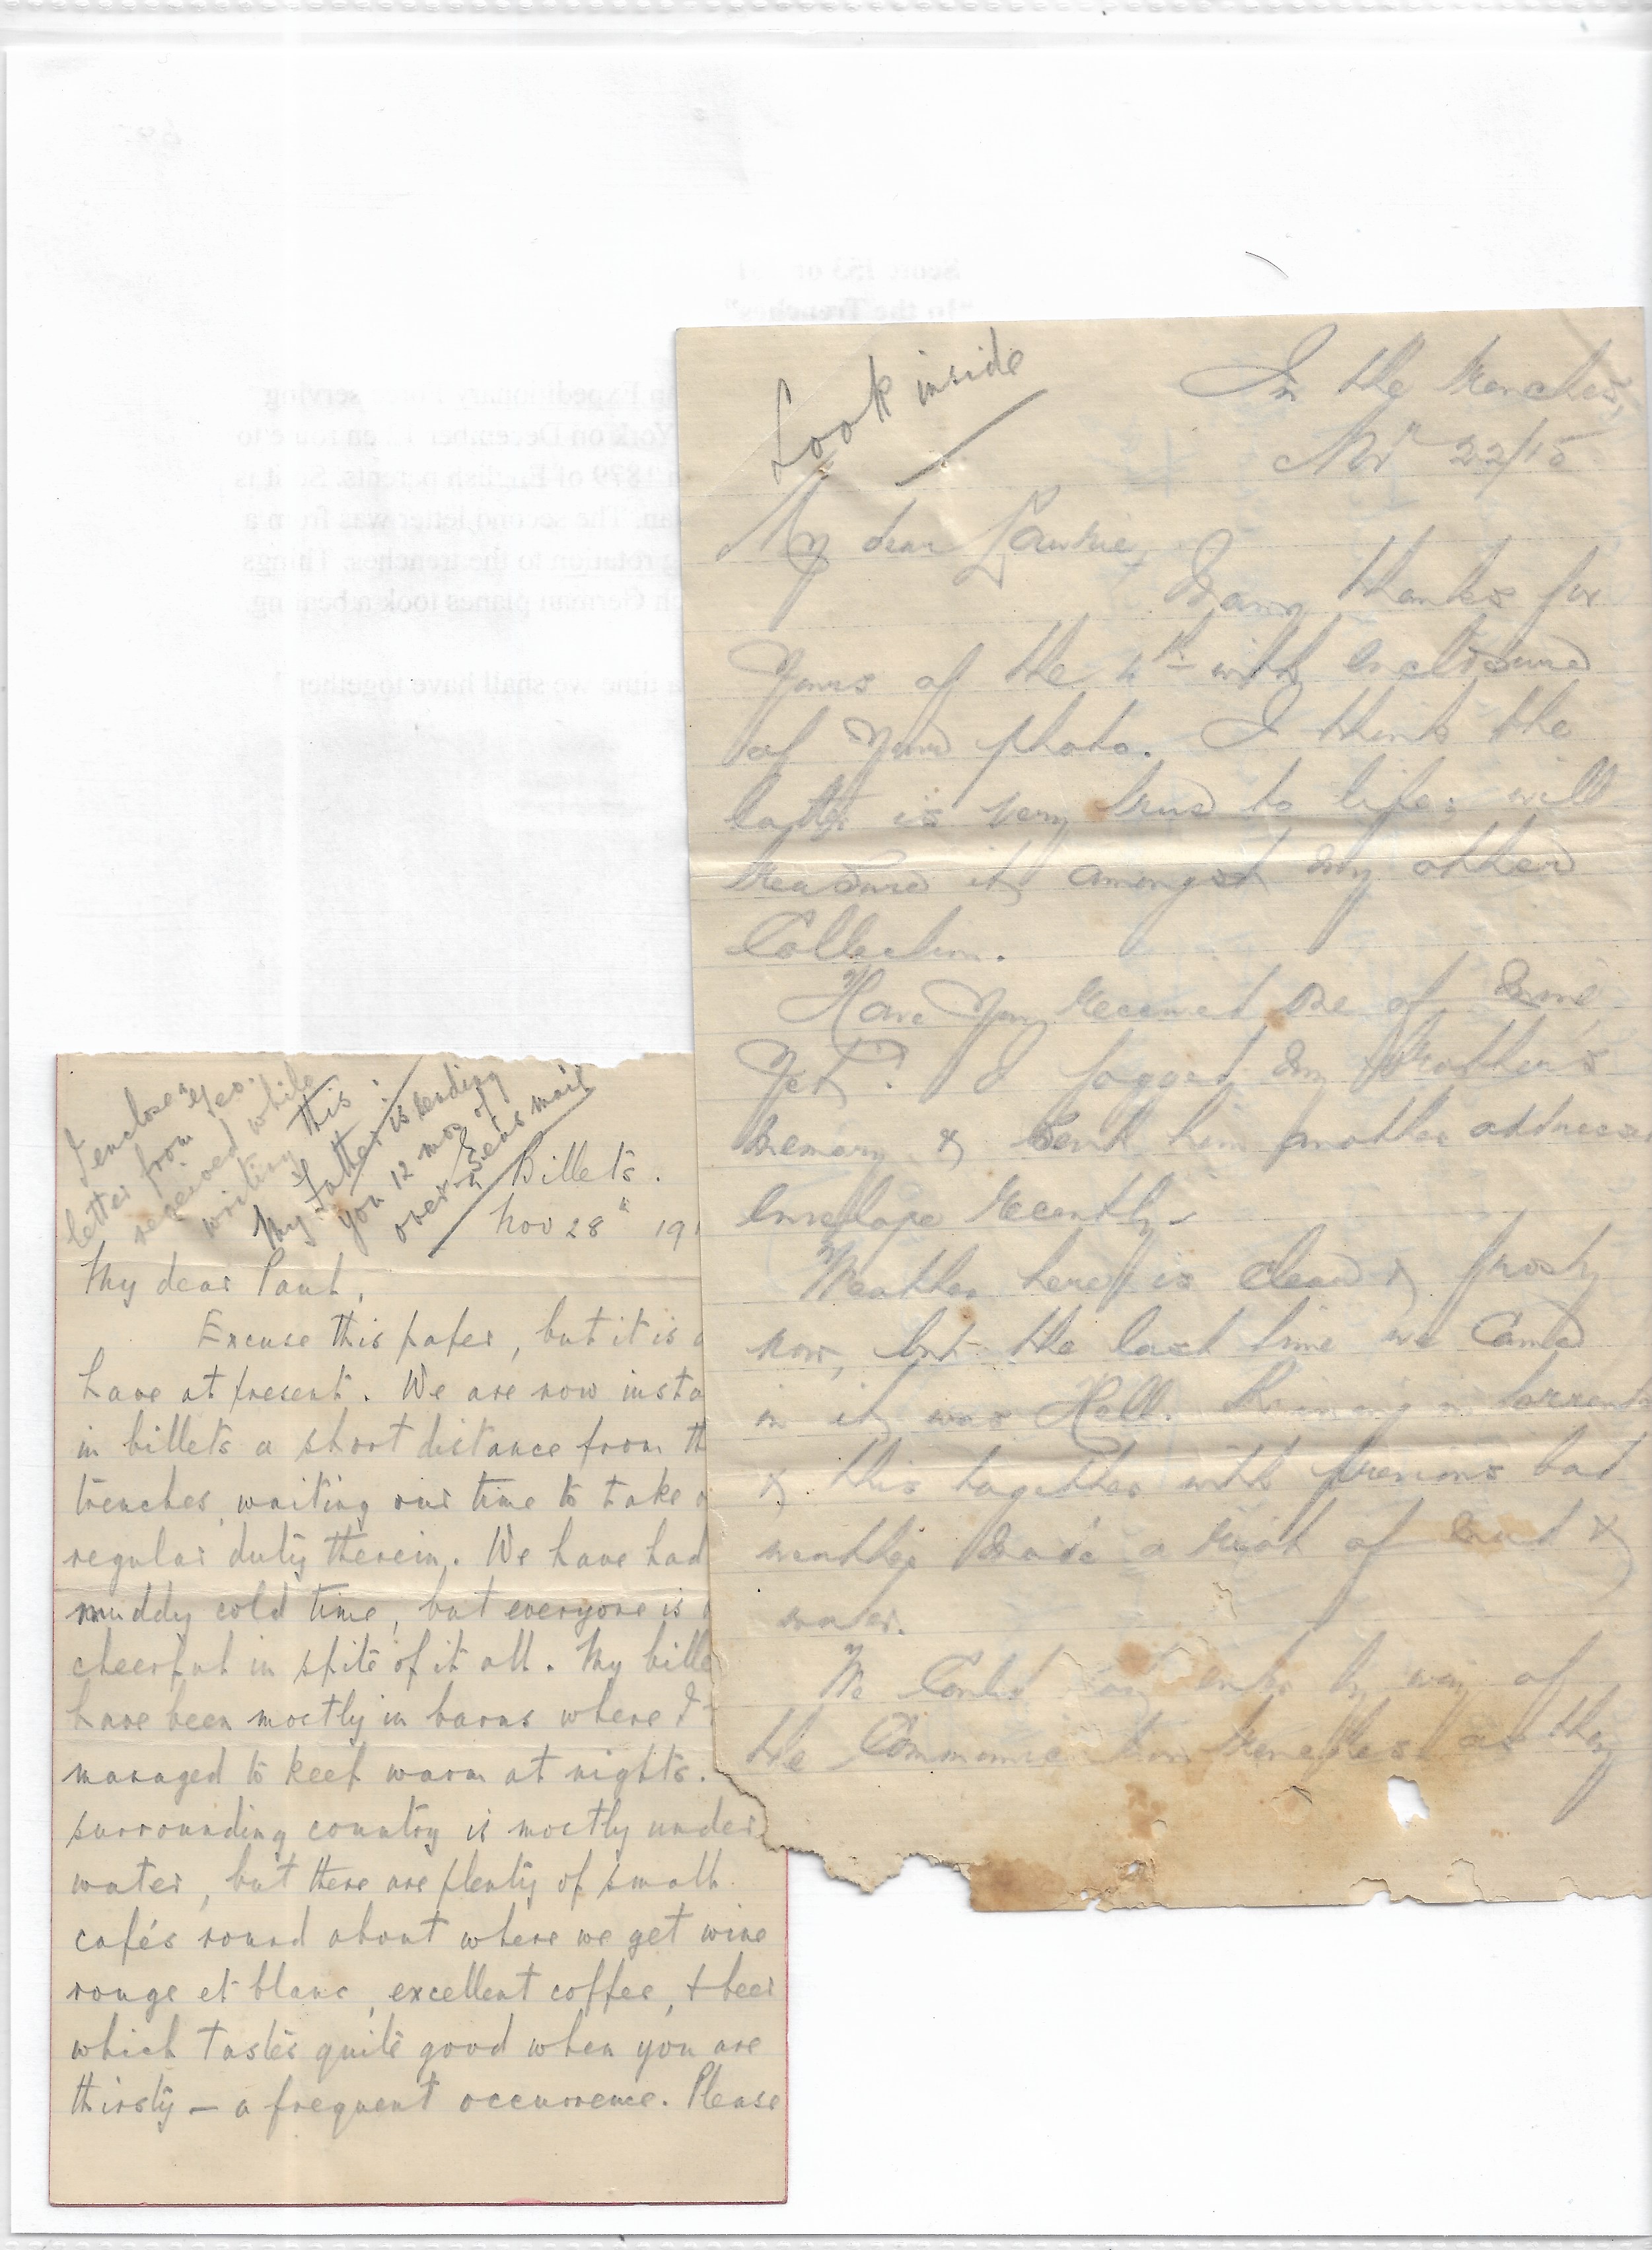 I enclose Geo.
letter from
received while
writing this.
My Father is sending
you 12 mos of
over-Seas mail
Billets.
Nov 28" 19
My dear Paul,
Excuse this paper, but it is
have at present. We are now insta
in billets a short distance from th
trenches, waiting our time to take
regular duty therein. We have had
muddy cold time, but everyone is
cheerful in spite of it all. My bille
have been mostly in barns where I
managed to keep warm at nights.
surrounding country is mostly under
water, but there are plenty of small
cafés round about where we get wine
rouge et blanc, excellent coffee, & beer
which tastes quite good when you are
thirsty — a frequent occurrence. Please
Look inside
In the trenches,
Novr 22/15
My dear Laurie,
Many thanks for
yours of the 4th with enclosure
of your photo. I think the
latter is very true to life: will
treasure it amongst my other
Collection.
Have you received one of mine
yet? I jogged my brother's
memory & sent him another addressed
envelope recently.
Weather here is clear & frosty
now, but the last time we came
in it was Hell. Raining in torrents
& this together with previous bad
weather made a of mud &
water.
We could enter by way of
the Communication trenches as they
In the Trenches"
Expeditionary Force serving
York on December 1 en route to
1879 of English parents. Scott is
The second letter was from a
rotation to the trenches. Things
German planes took a beating.
a time we shall have together!